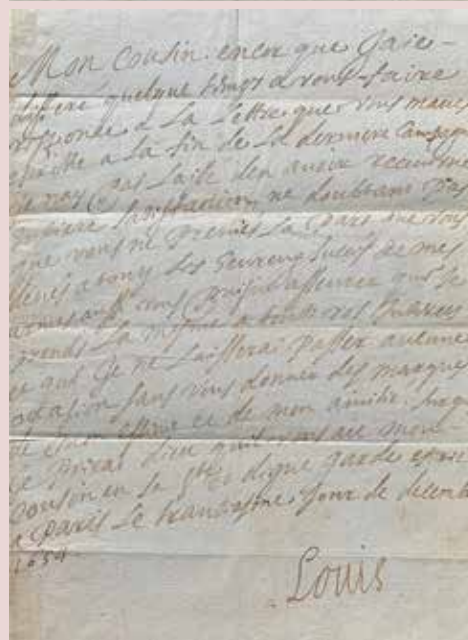 Mon Cousin encor que Jaie
differé quelque temps a vous faire
responce a La Lettre que vous maues
escritte a La fin de La derniere Campagne
Je nay pas laisé den auoir receu une
entiere satisfaction, ne doubtant pas
que vous ne preniés La part que vous
deués a tous Les heureux succés de mes
armes aussi vous puisje asseurer que Je
prends La mesme a tous vos Interests
et que Je ne Laisseray passer aucune
occasion sans vous donner des marques
de mon estime et de mon amitié. Sur ce
Je prieray Dieu quil vous aie mon
Cousin en sa ste et digne garde escrit
a Paris Le Jour de decemb
Louis